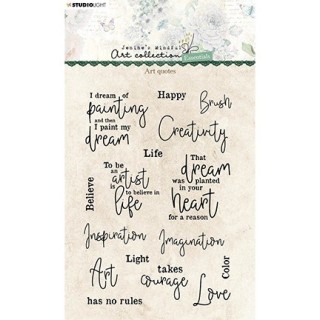 STUDIOLIGHT
Jenine's Mindful
Art collection
Essentials
Art quotes
I dream of
painting
and then
I paint my
dream
Happy
Brush
Creativity
Life
To be
an
artist
is
to believe in
life
Believe
That
dream
was planted
in your
heart
for a reason
Inspiration
Imagination
Art
has no rules
Light
takes
courage
Color
Love